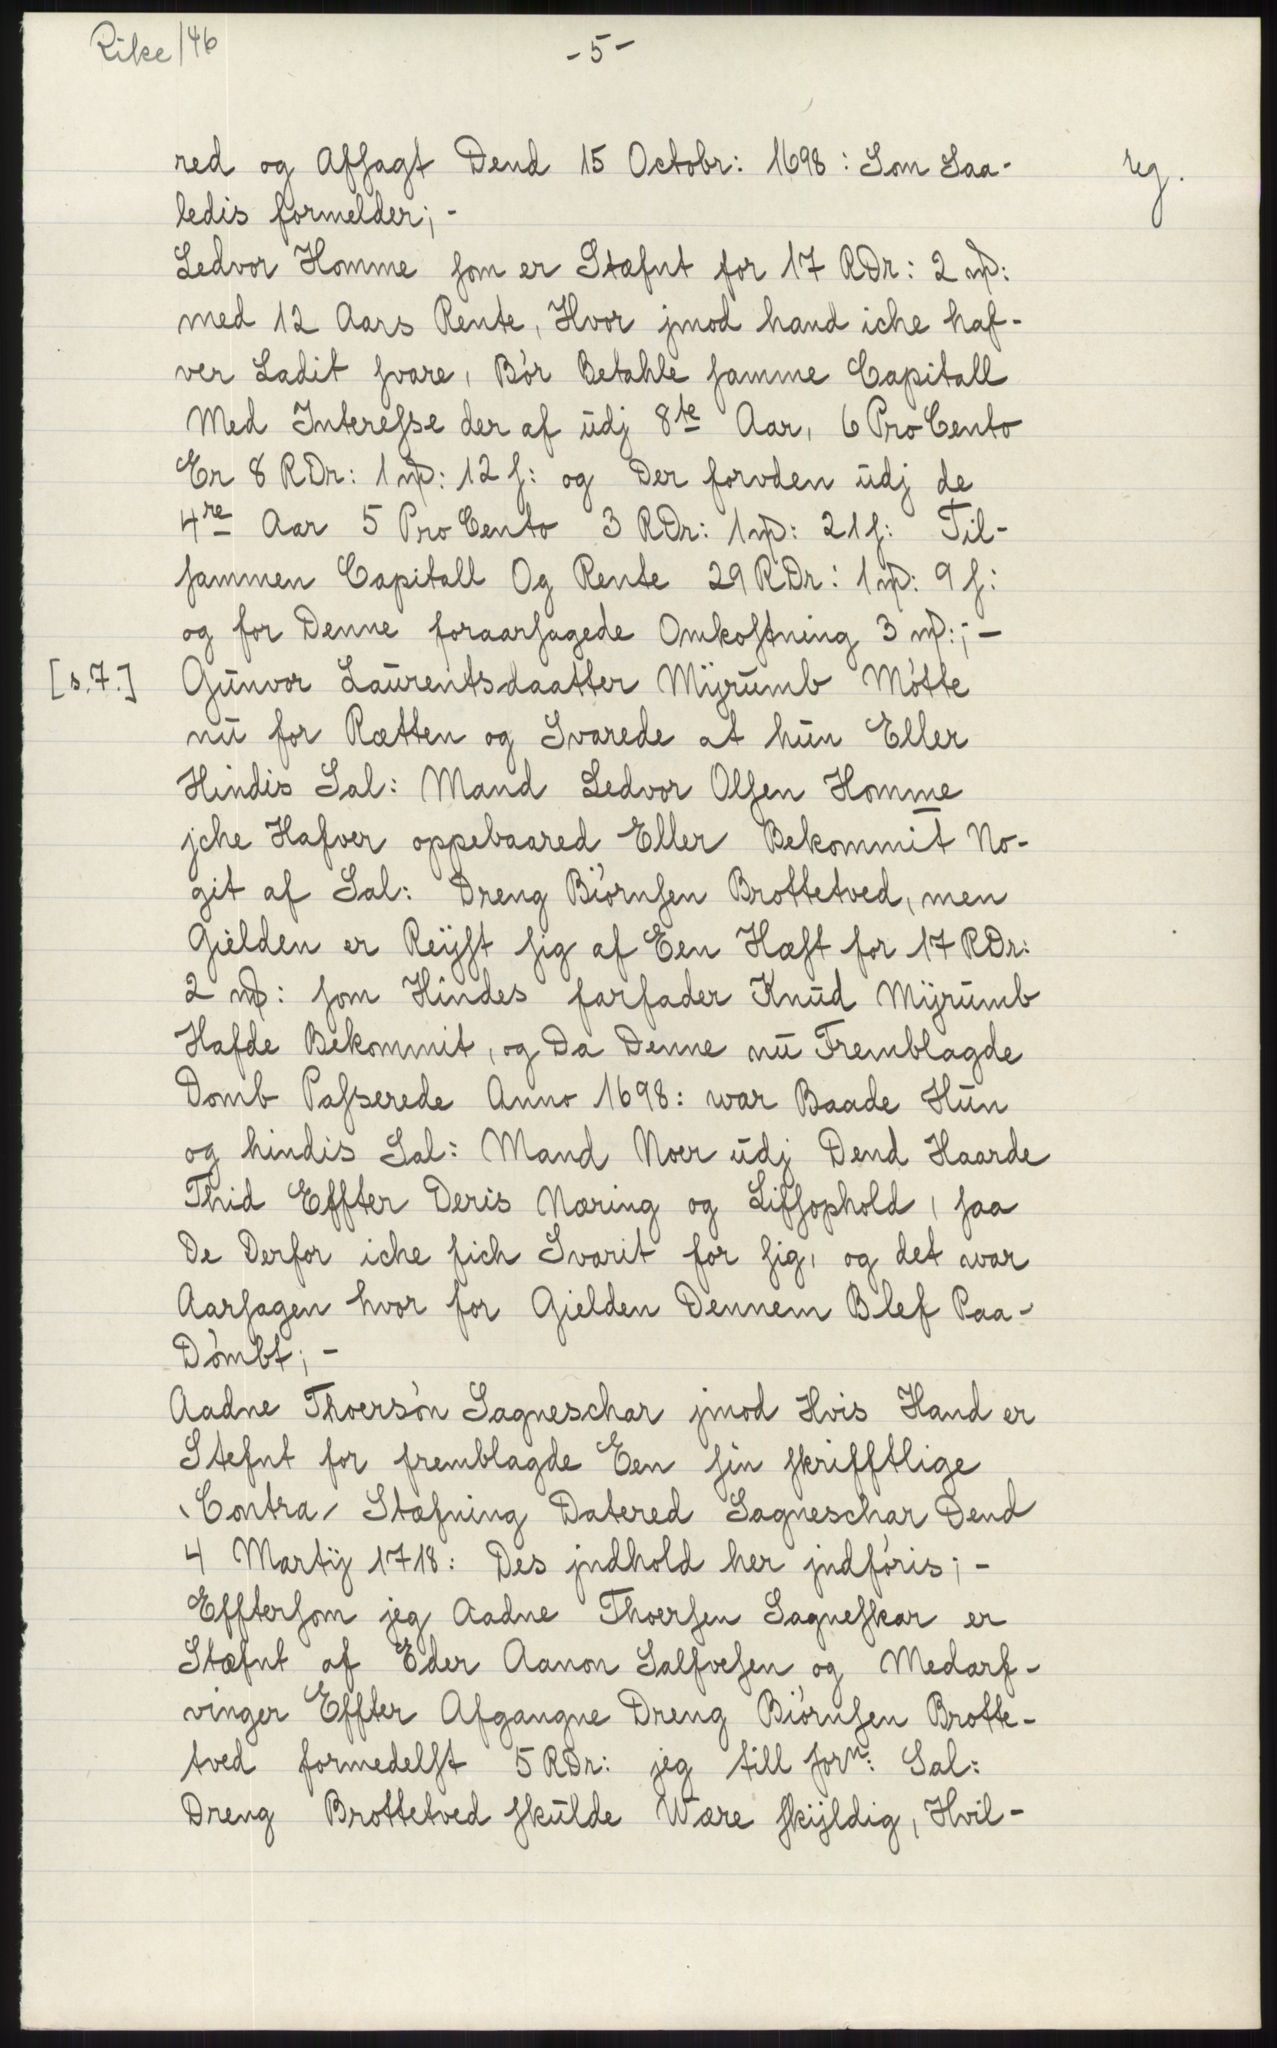 Rike/46
-5-
red og Afsagt Dend 15 Octobr: 1698: Som Saa-
reg.
ledis formelder; -
Ledvor Homme som er Stæfnt for 17 RDr: 2 mþ:
med 12 Aars Rente, Hvor jmod hand iche haf-
ver Ladit svare, Bör Betahle samme Capitall
Med Interesse der af udj 8te Aar, 6 Pro Cento
Er 8 RDr: 1 mþ: 12 s: og Der forvden udj de
4re Aar 5 Pro Cento 3 RDr: 1 mþ: 21 s: Til-
sammen Capitall Og Rente 29 RDr: 1 mþ: 9 s:
og for Denne foraarsagede Omkostning 3 mþ:; -
[s.7.] Gunvor Laurentsdaatter Mijrumb Mötte
nu for Rætten og Svarede at hun Eller
Hindis Sal: Mand Ledvor Olsen Homme
jche Hafver oppebaared Eller Bekommit No-
git af Sal: Dreng Biörnsen Brottetved, men
Gielden er Reijst sig af Een Hæst for 17 RDr:
2 mþ: som Hindes farfader Knud Mijrumb
Hafde Bekommit, og Da Denne nu Fremblagde
Domb Passerede Anno 1698: war Baade Hun
og hindis Sal: Mand Noer udj Dend Haarde
Thid Effter Deris Næring og Lifsophold, saa
De Derfor iche fich Svarit for sig, og det war
Aarsagen hvor for Gielden Dennem Blef Paa-
Dömbt; -
Aadne Thoersön Sagneschar jmod Hvis Hand er
Stefnt for fremblagde Een sin skrifftlige
Contra Stæfning Datered Sagneschar Dend
4 Martij 1718: Des jndhold her jndföris; -
Efftersom jeg Aadne Thoersen Sagneskar er
Stæfnt af Eder Aanon Salfvesen og Medarf-
vinger Effter Afgangne Dreng Biörnsen Brotte-
tved formedelst 5 RDr: jeg till forn: Sal:
Dreng Brottetved skulde Wære skijldig, Hvil-